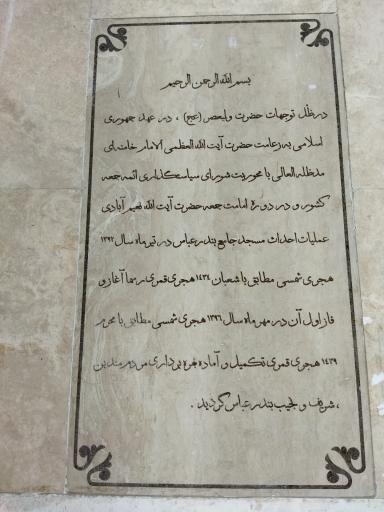 بسم الله الرحمن الرحیم
در ظلّ توجهات حضرت ولیعصر (عج) ، در عهد جمهوری
اسلامی به زعامت حضرت آیت الله العظمی الامام خامنه ای
مدظله العالی با محوریت شورای سیاستگذاری ائمه جمعه
کشور و در دوره امامت جمعه حضرت آیت الله نعیم آبادی
عملیات احداث مسجد جامع بندرعباس در تیر ماه سال ۱۳۹۲
هجری شمسی مطابق با شعبان ۱۴۳۴ هجری قمری رسما آغاز و
فاز اول آن در مهر ماه سال ۱۳۹۶ هجری شمسی مطابق با محرم
۱۴۳۹ هجری قمری تکمیل و آماده بهره برداری مردم متدین
، شریف و نجیب بندرعباس گردید .